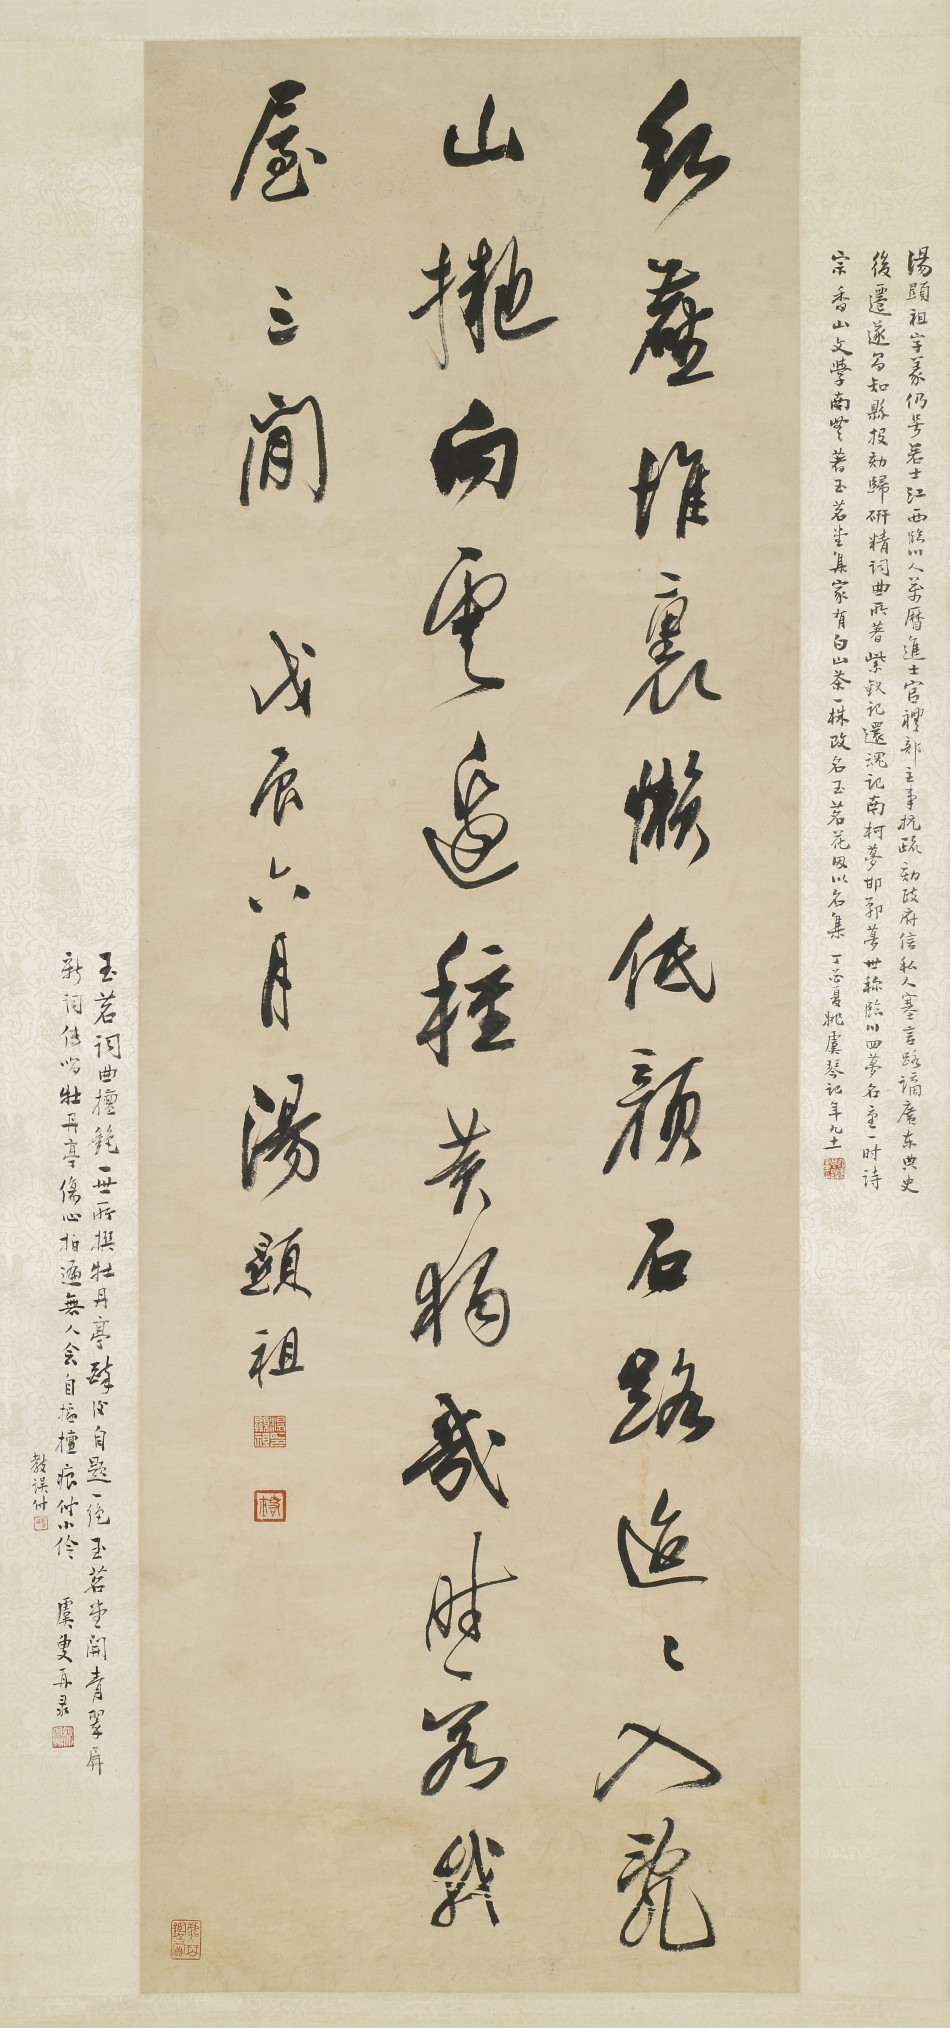 紅塵堆裏懶低顏石路迢〻入亂
山擬向雲邊種黃獨幾時容我
屋三間 戊辰六月湯顯祖
湯顯祖字義仍號若士江西臨川人萬曆進士官禮部主事抗疏劾政府信私人塞言路謫廣东典史
後遷遂昌知縣投劾歸研精詞曲所著紫釵記還魂記南柯夢邯鄲夢世称臨川四夢名重一时詩
宗香山文學南豐著玉茗堂集家有白山茶一株改名玉茗花因以名集 丁酉夏姚虞琴記年九十一
玉茗詞曲擅絕一世所撰牡丹亭 後自題一绝玉茗堂開青翠屏
新詞傳唱牡丹亭傷心拍遍無人会自掐檀痕付小伶 虞叟再录
教誤付